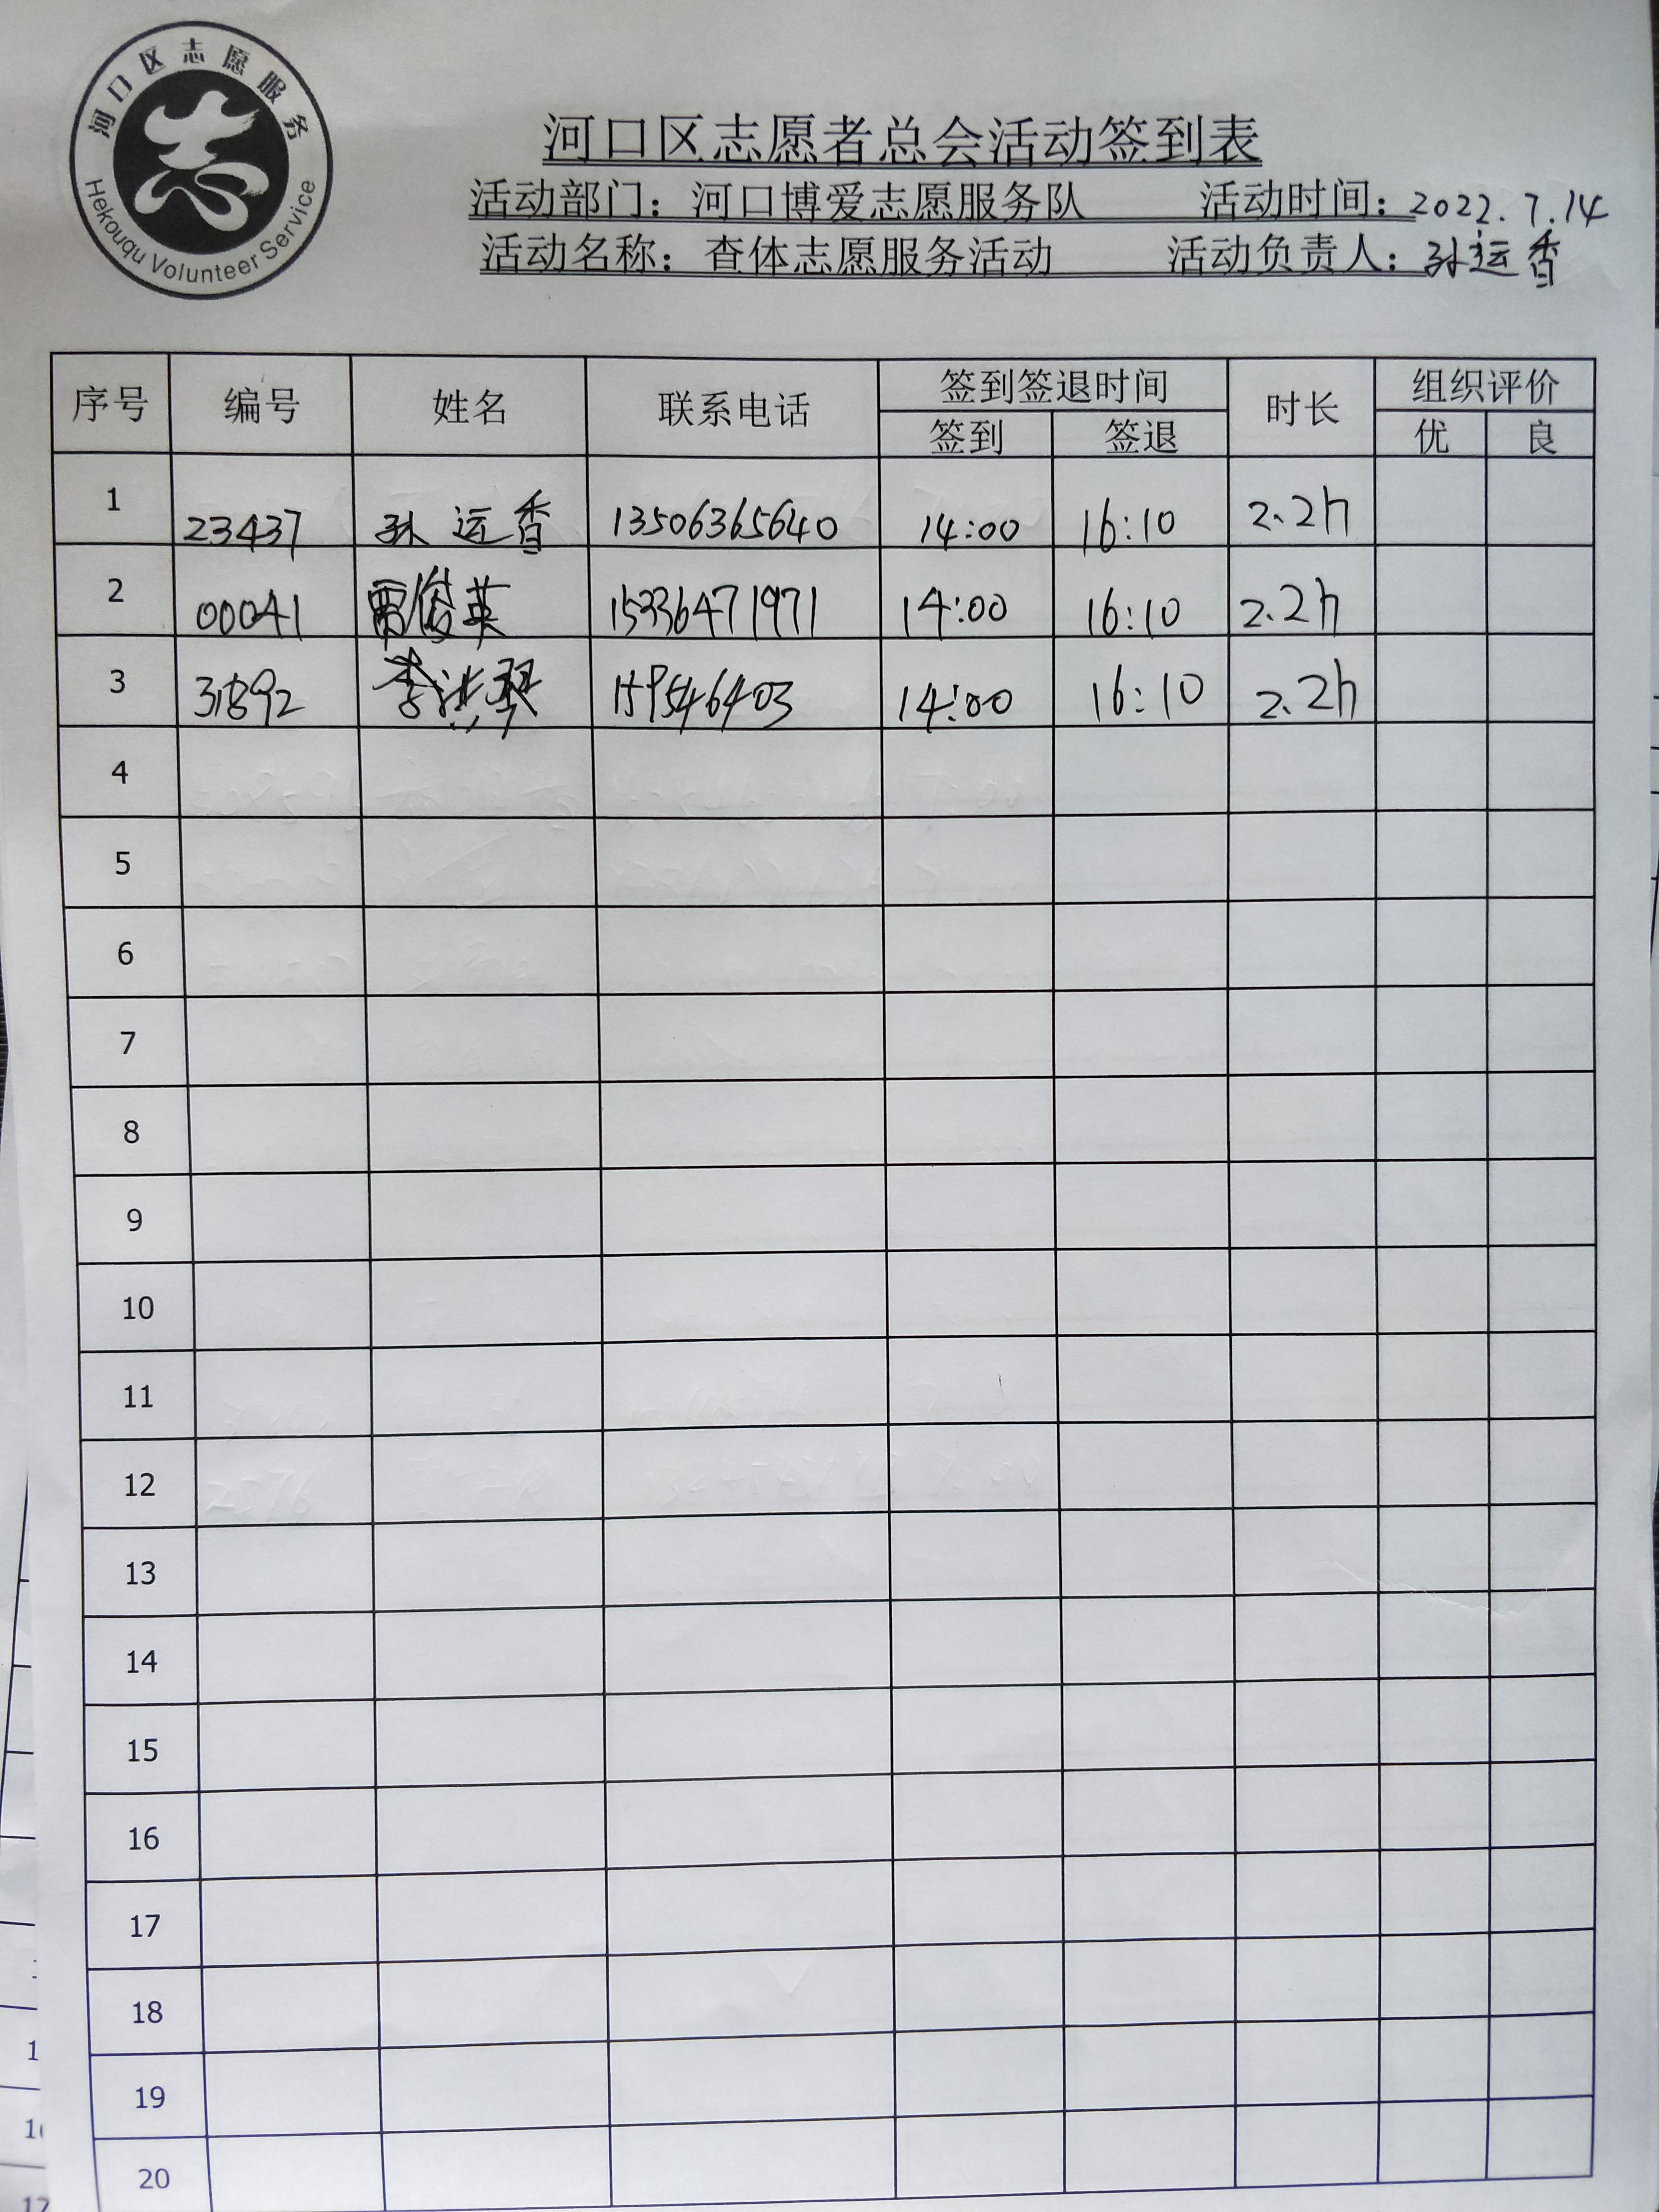 河口区志愿服务
Hekouqu Volunteer Service
河口区志愿者总会活动签到表
活动部门：河口博爱志愿服务队 活动时间：2022.7.14
活动名称：查体志愿服务活动 活动负责人：孙运香
序号 编号 姓名 联系电话 签到签退时间 时长 组织评价
签到 签退 优 良
1 23437 孙运香 13506365640 14:00 16:10 2.2h
2 00041 雷俊英 15336471971 14:00 16:10 2.2h
3 31892 李洪琴 14:00 16:10 2.2h
4
5
6
7
8
9
10
11
12
13
14
15
16
17
18
19
20